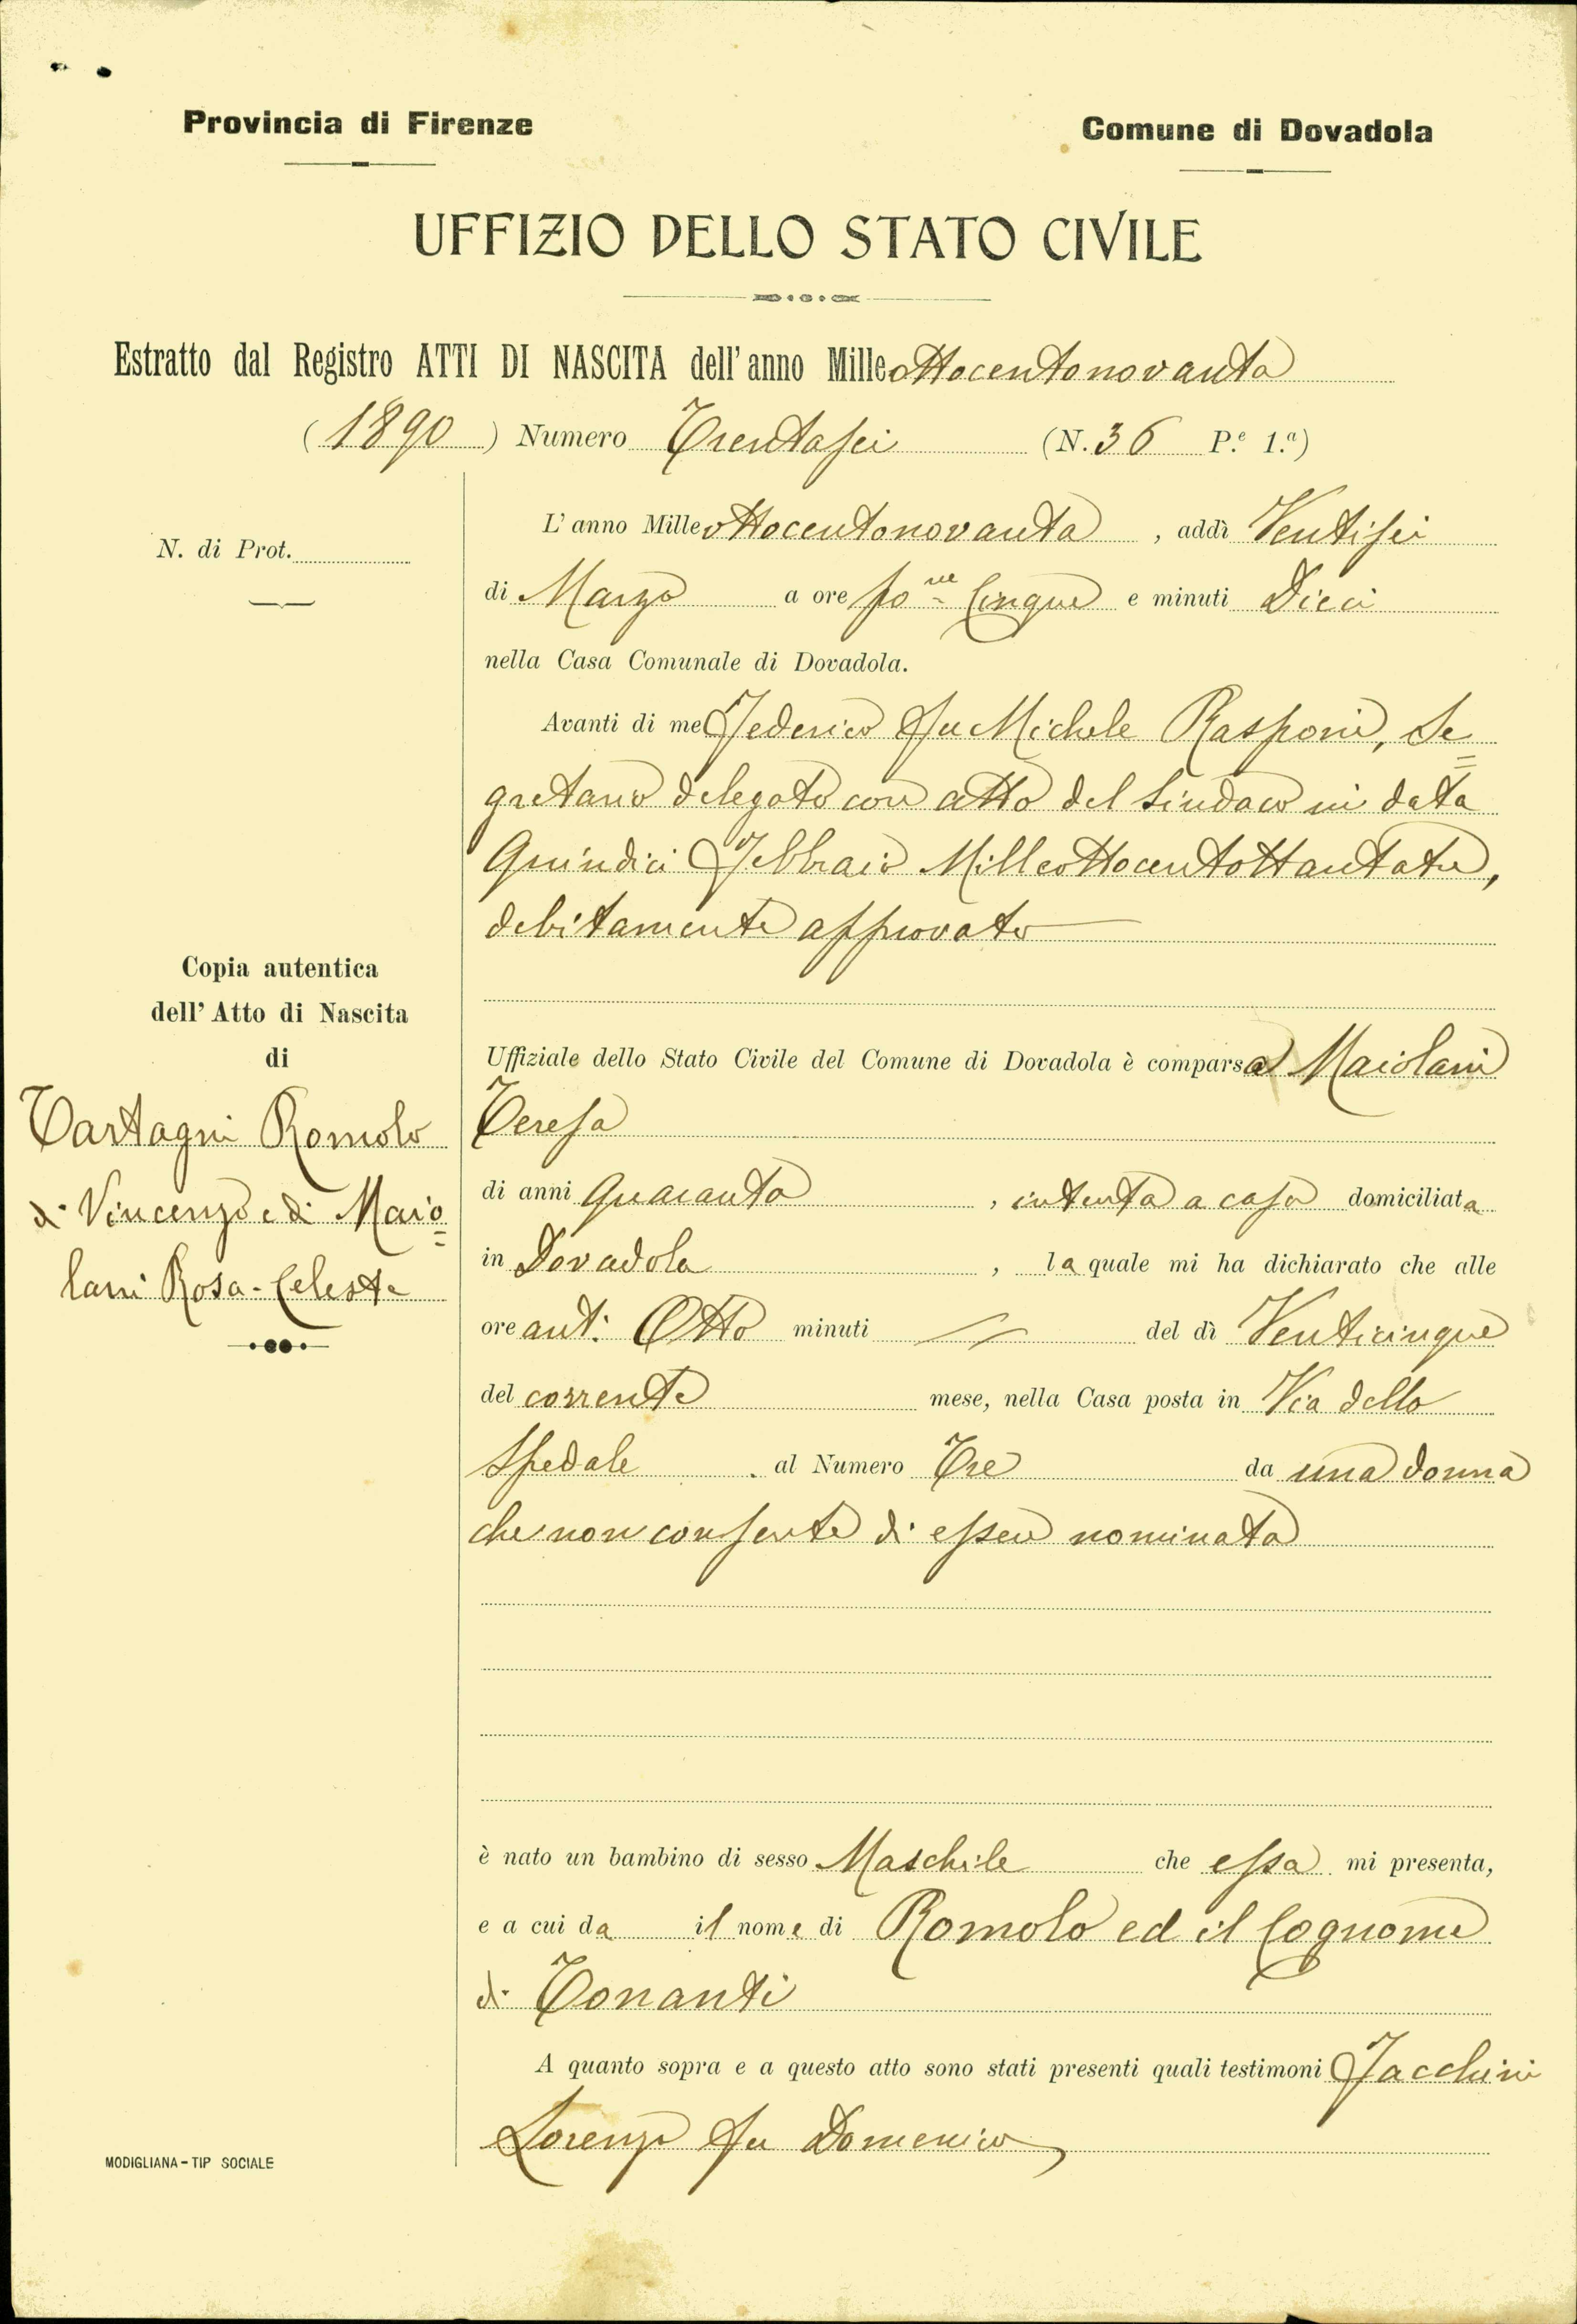 Provincia di Firenze
Comune di Dovadola
UFFIZIO DELLO STATO CIVILE
Estratto dal Registro ATTI DI NASCITA dell'anno Milleottocentonovanta
(1890) Numero Trentasei (N. 36 P.e 1.a)
N. di Prot.
L'anno Milleottocentonovanta, addì Ventisei
di Marzo a ore po.ne Cinque e minuti Dieci
nella Casa Comunale di Dovadola.
Avanti di me Federico fu Michele Rasponi, Se=
gretario delegato con atto del Sindaco in data
Quindici Febbraio Milleottocentottantatre,
debitamente approvato
Copia autentica
dell'Atto di Nascita
di
Tartagni Romolo
di Vincenzo e di Maio=
lani Rosa-Celeste
Uffiziale dello Stato Civile del Comune di Dovadola è comparsa Maiolani
Teresa
di anni Quaranta, intenta a casa domiciliata
in Dovadola, la quale mi ha dichiarato che alle
ore ant: Otto minuti — del dì Venticinque
del corrente mese, nella Casa posta in Via dello
Spedale al Numero Tre da una donna
che non consente di essere nominata
è nato un bambino di sesso Maschile che essa mi presenta,
e a cui da il nome di Romolo ed il Cognome
di Tonanti
A quanto sopra e a questo atto sono stati presenti quali testimoni Facchini
Lorenzo fu Domenico
MODIGLIANA - TIP SOCIALE